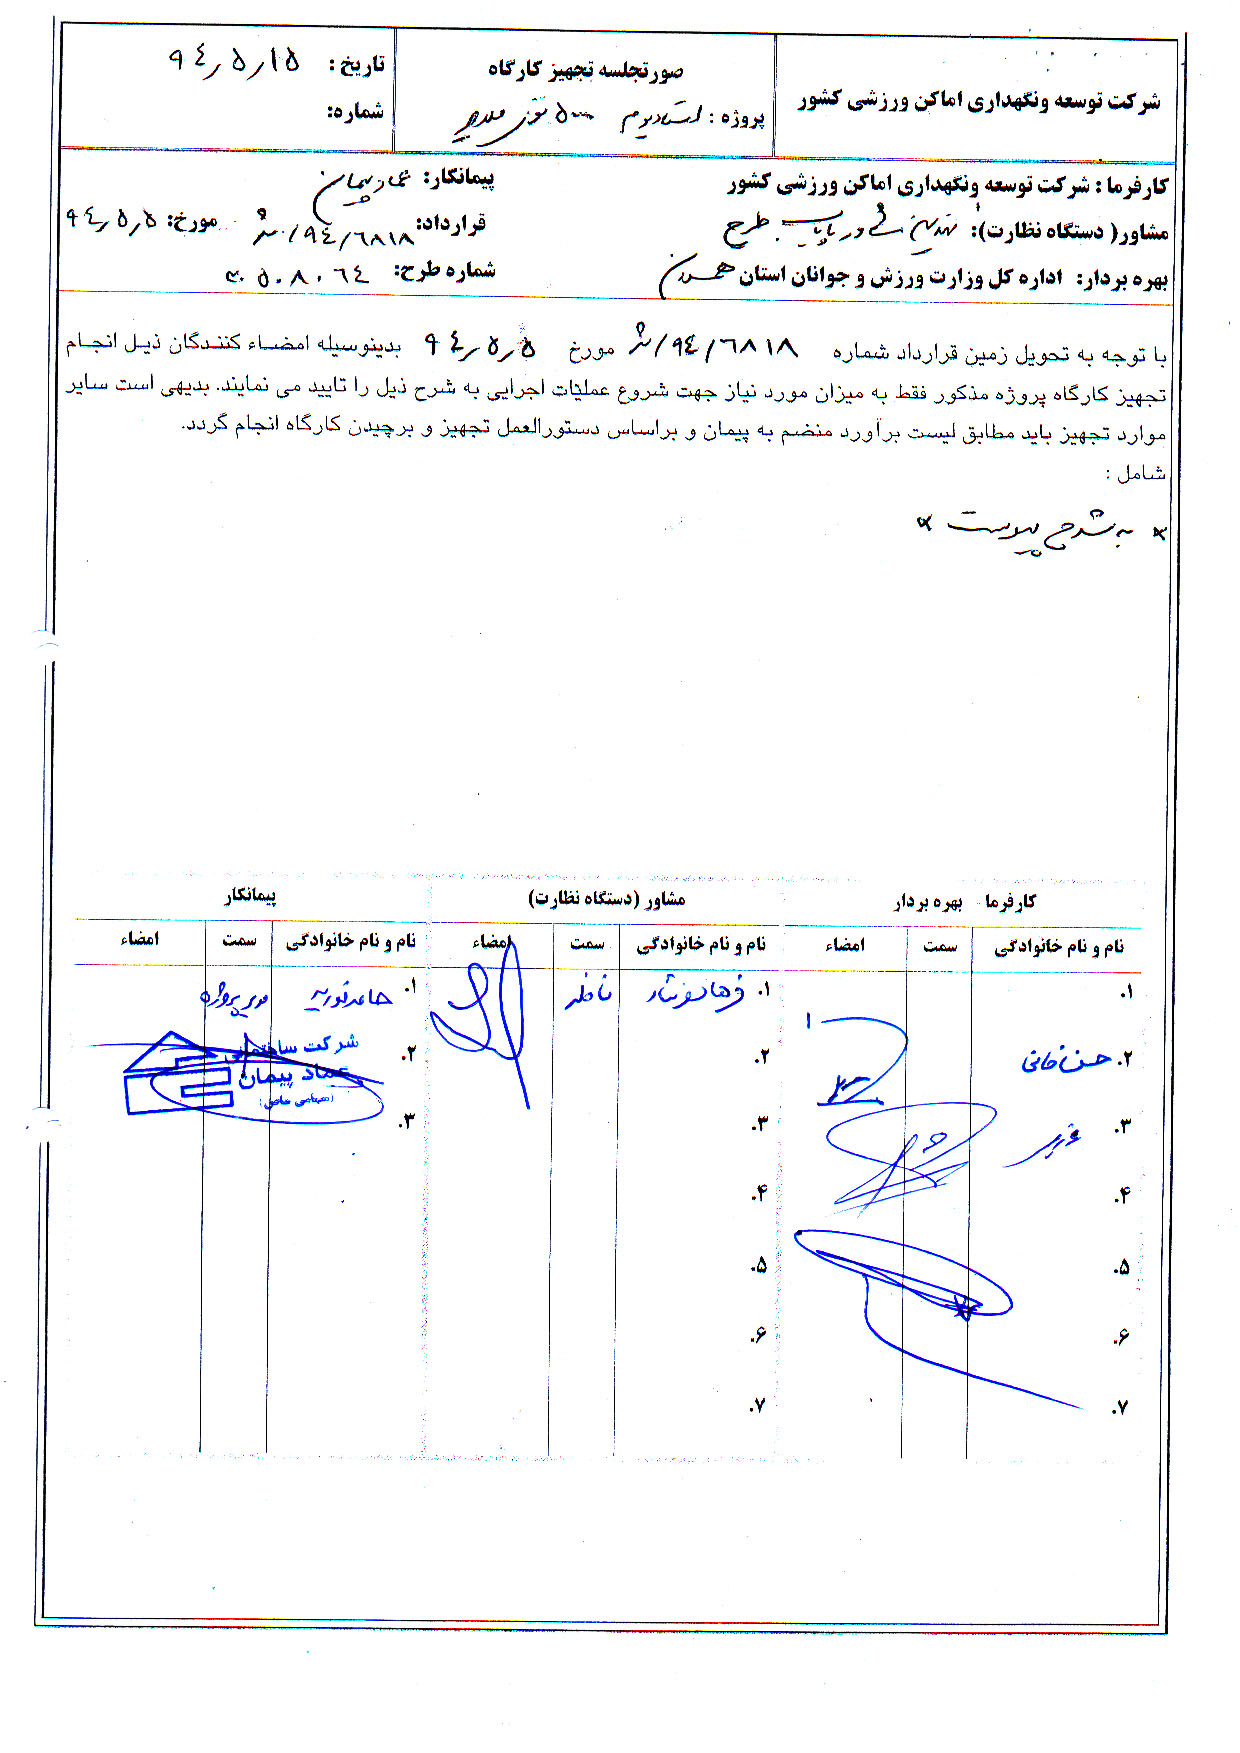 شرکت توسعه ونگهداری اماکن ورزشی کشور
صورتجلسه تجهیز کارگاه
پروژه : استادیوم ۵۰۰۰ نفری ملایر
تاریخ : ۹۴٫۵٫۱۵
شماره:
کارفرما : شرکت توسعه ونگهداری اماکن ورزشی کشور
پیمانکار: عماد پیمان
مشاور( دستگاه نظارت): طرح
قرارداد: ۹۴/۶۸۱۸/ش مورخ: ۹۴٫۵٫۵
بهره بردار: اداره کل وزارت ورزش و جوانان استان همدان
شماره طرح: ۳۰۵۰۸۰۶۴
با توجه به تحویل زمین قرارداد شماره ۹۴/۶۸۱۸/ش مورخ ۹۴٫۵٫۵ بدینوسیله امضاء کنندگان ذیل انجام
تجهیز کارگاه پروژه مذکور فقط به میزان مورد نیاز جهت شروع عملیات اجرایی به شرح ذیل را تایید می نمایند. بدیهی است سایر
موارد تجهیز باید مطابق لیست برآورد منضم به پیمان و براساس دستورالعمل تجهیز و برچیدن کارگاه انجام گردد.
شامل :
* به شرح پیوست *
کارفرما - بهره بردار
مشاور (دستگاه نظارت)
پیمانکار
نام و نام خانوادگی سمت امضاء
نام و نام خانوادگی سمت امضاء
نام و نام خانوادگی سمت امضاء
۱.
۱. ناظر
۱. مدیر پروژه
۲. حسن خانی
۲.
۲.
شرکت ساختمانی
عماد پیمان
(سهامی خاص)
۳.
۳.
۳.
۴.
۴.
۵.
۵.
۶.
۶.
۷.
۷.